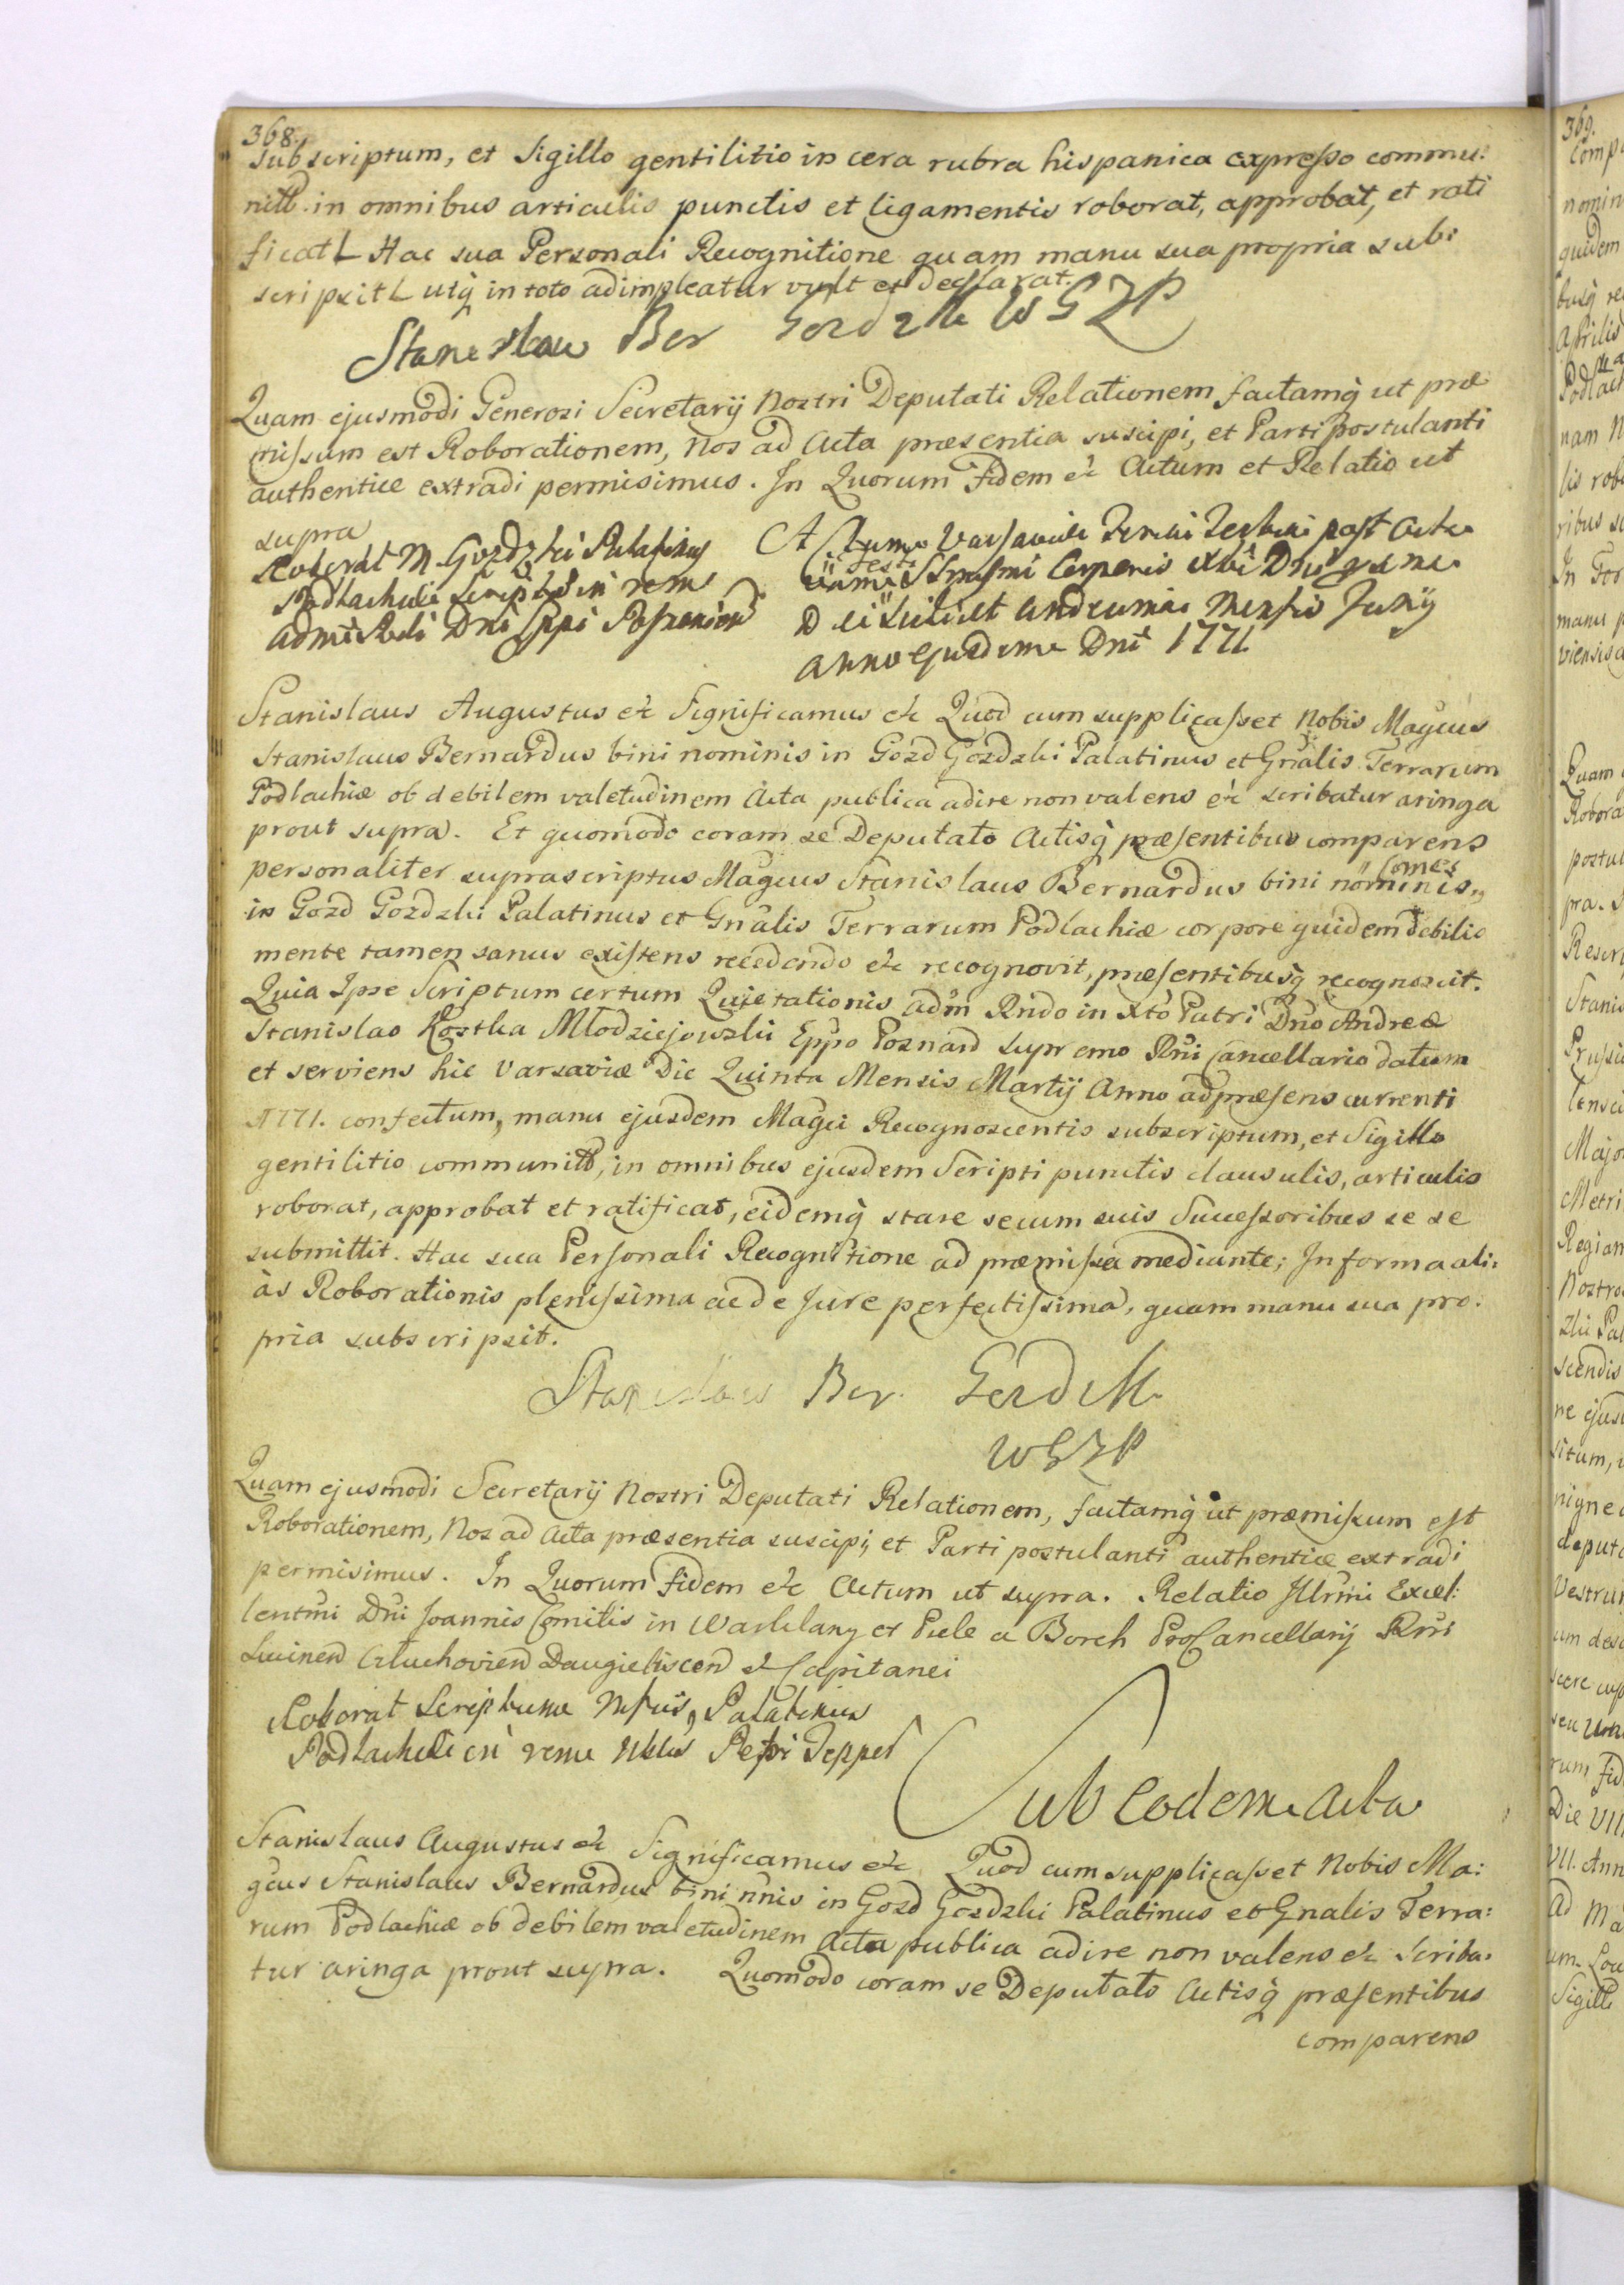 368.
subscriptum, et Sigillo gentilitio in cera rubra hispanica expresso commu:
nitt. in omnibus articulis punctis et ligamentis roborat, approbat, et rati
ficat Hac sua Personali Recognitione quam manu sua propria sub:
scripsit utq̀ in toto adimpleatur vult et declarat.
Stanisław Ber Gozdzki WGZP
Quam ejusmodi Generosi Secretarij Nostri Deputati Relationem factamq̀ ut præ
missum est Roborationem, Nos ad Acta præsentia suscipi, et Parti postulanti
authentice extradi permisimus. In Quorum Fidem etc Actum et Relatio ut
supra
Roborat M. Gozdzki Palatinus
Podlachiæ Scriptum in rem
Admi Rndi Dni Eppi Posnanien
Actum Varsaviæ Feria post
festi Corporis Dni
Dei scilicet Mensis Junij
Anno Ejusdem Dni 1771
Stanislaus Augustus etc Significamus etc Quod cum supplicasset Nobis Magcus
Stanislaus Bernardus bini nominis in Gozd Gozdzki Palatinus et Gnalis Terrarum
Podlachiæ ob debilem valetudinem Acta publica adire non valens etc scribatur aringa
prout supra. Et quomodo coram se Deputato Actisq̀ præsentibus comparens
personaliter suprascriptus Magcus Stanislaus Bernardus bini nominis,, Comes
in Gozd Gozdzki Palatinus et Gnalis Terrarum Podlachiæ corpore quidem debilis
mente tamen sanus existens recedendo etc recognovit, præsentibusq̀ recognoscit.
Quia Ipse Scriptum certum Quietationis Adm Rndo in Xto Patri Dno Andreæ
Stanislao Kostka Młodziejowski Eppo Poznan Supremo Rni Cancellario datum
et serviens hic Varsaviæ Die Quinta Mensis Martij Anno ad præsens currenti
1771. confectum, manu ejusdem Magci Recognoscentis subscriptum, et Sigillo
gentilitio communitt, in omnibus ejusdem Scripti punctis clausulis, articulis
roborat, approbat et ratificat, eidemq̀ stare secum suis Successoribus se se
submittit. Hac sua Personali Recognitione ad præmissa mediante; In forma ali:
às Roborationis plenissima ac de Jure perfectissima, quam manu sua pro:
pria subscripsit.
Stanisław Ber. Gozdzki
WGZP
Quam ejusmodi Secretarij Nostri Deputati Relationem, factamq̀ ut præmissum est
Roborationem, Nos ad Acta præsentia suscipi, et Parti postulanti authentice extradi
permisimus. In Quorum Fidem etc Actum ut supra. Relatio Illrmi Excel:
lentmi Dni Joannis Comitis in Warklany et Prele a Borch ProCancellarij Rni
Lucinen Cluchovien Daugieliscen etc Capitanei
Roborat Scriptum Palatinus
Podlachiæ in rem Nblis Petri Tepper
Sub Eodem Actu
Stanislaus Augustus etc Significamus etc Quod cum supplicasset Nobis Ma:
gcus Stanislaus Bernardus bini nnis in Gozd Gozdzki Palatinus et Gnalis Terra:
rum Podlachiæ ob debilem valetudinem Acta publica adire non valens etc Scriba:
tur aringa prout supra. Quomodo coram se Deputato Actisq̀ præsentibus
comparens
369.